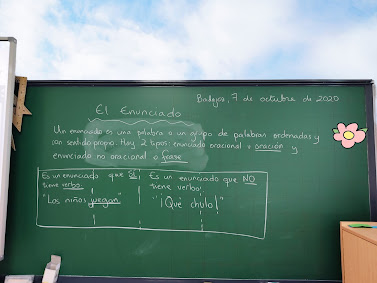 Badajoz, 7 de octubre de 2020
El Enunciado
Un enunciado es una palabra o un grupo de palabras ordenadas y
con sentido propio. Hay 2 tipos: enunciado oracional u oración y
enunciado no oracional o frase
Es un enunciado que SÍ
tiene verbo.
"Los niños juegan"
Es un enunciado que NO
tiene verbo:
"¡Qué chulo!"